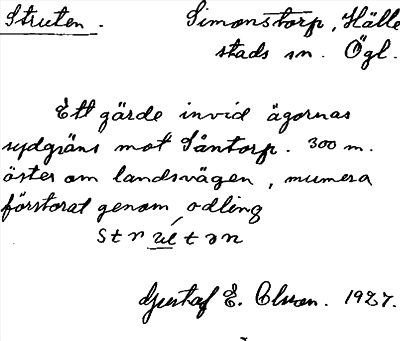 Struten. Simonstorp, Hälle
stads sn. Ögl.
Ett gärde invid ägornas
sydgräns mot Såntorp. 300 m.
öster om landsvägen, numera
förstorat genom odling
Gustaf E. Olsson. 1927.